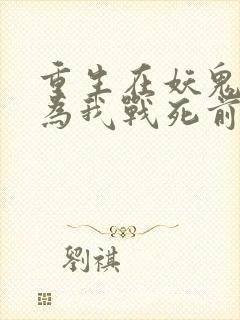 重生在妖鬼
為我戰死前
劉祺